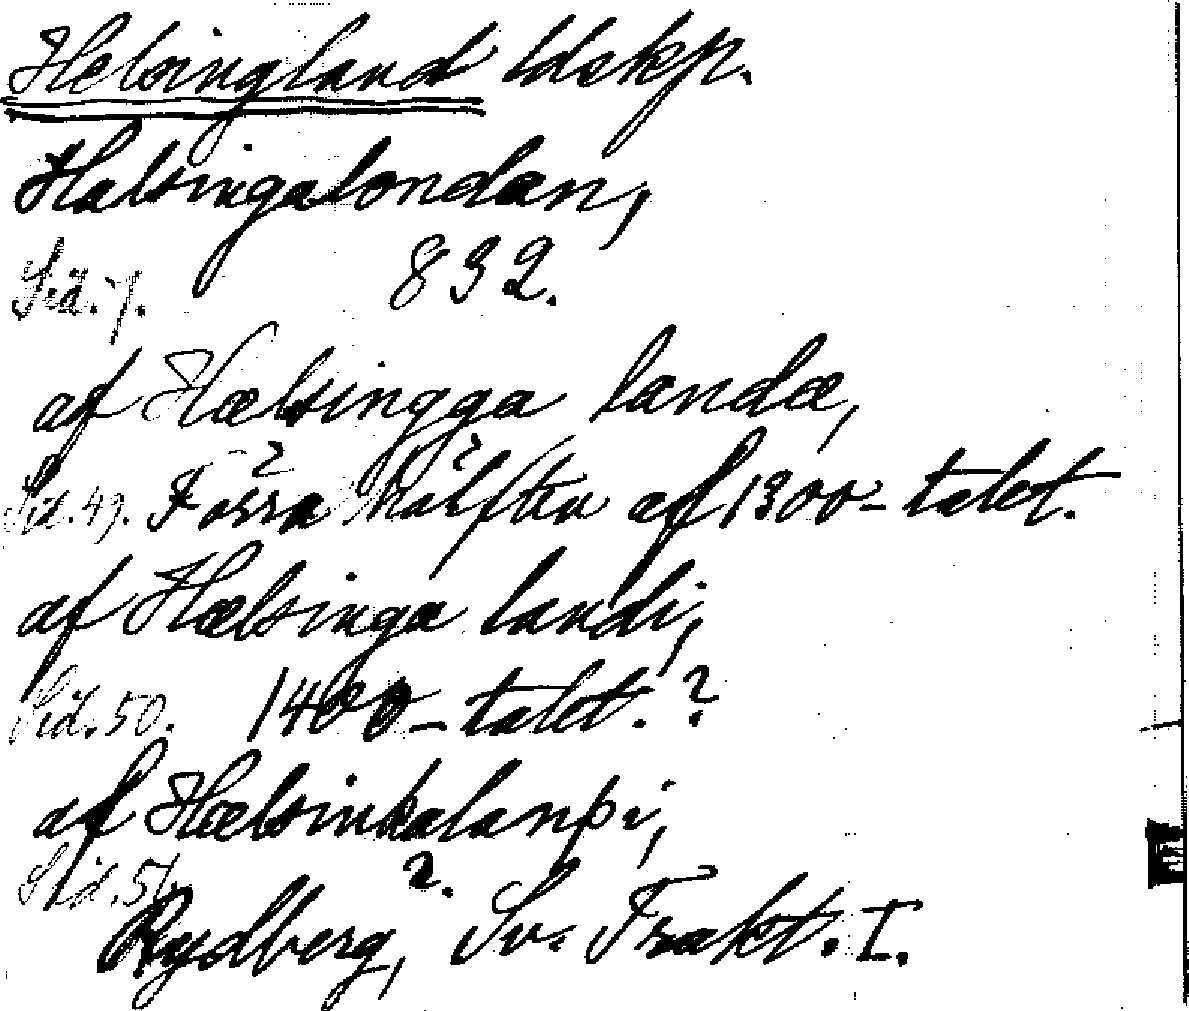 Helsingland ldskp.
Halsingalondæn,
Sid. 7. 832.
af Hælsingga landæ,
Sid. 49. Förra hälften af 1300-talet.
af Hælsinga landi,
Sid. 50. 1400-talet.?
af Hælsinkalanþi,
Sid. 51. ?.
Rydberg, Sv. Trakt. I.